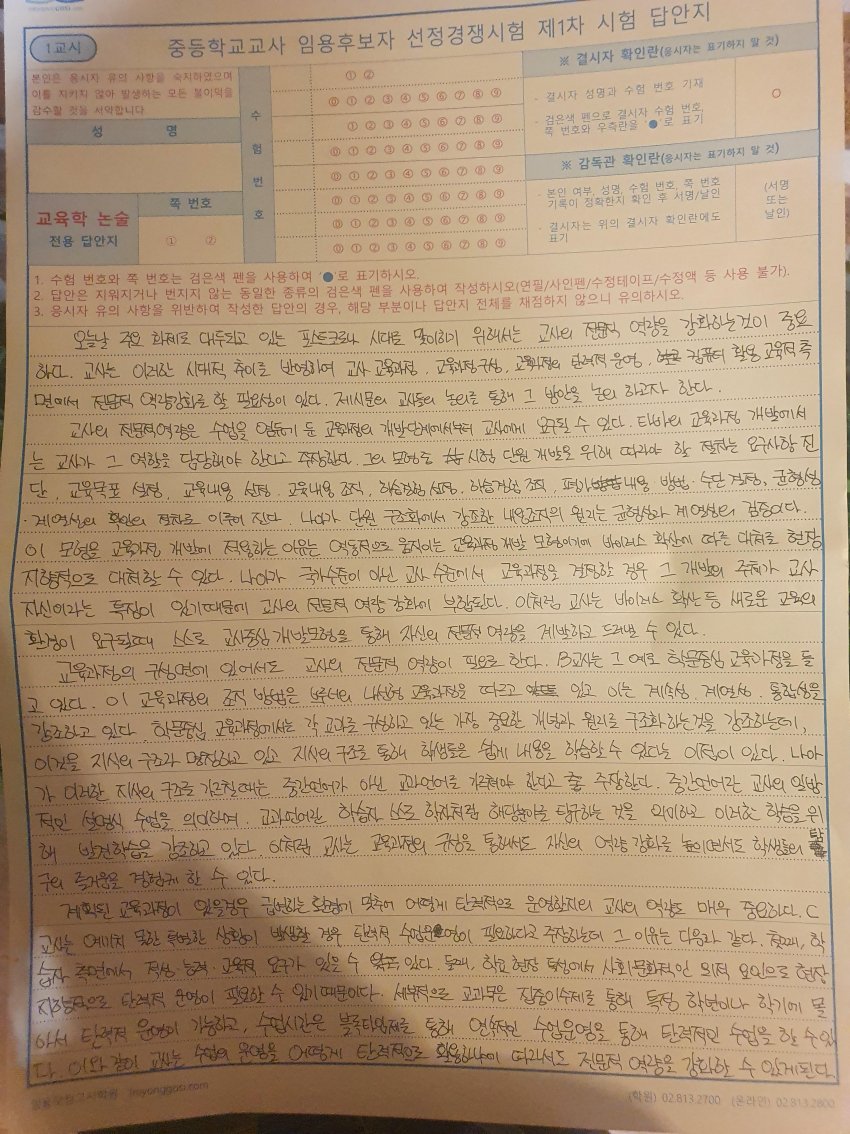 1교시
중등학교교사 임용후보자 선정경쟁시험 제1차 시험 답안지
본인은 응시자 유의 사항을 숙지하였으며
이를 지키지 않아 발생하는 모든 불이익을
감수할 것을 서약합니다
성 명
수 험 번 호
① ②
⓪ ① ② ③ ④ ⑤ ⑥ ⑦ ⑧ ⑨
① ② ③ ④ ⑤ ⑥ ⑦ ⑧ ⑨
⓪ ① ② ③ ④ ⑤ ⑥ ⑦ ⑧ ⑨
⓪ ① ② ③ ④ ⑤ ⑥ ⑦ ⑧ ⑨
⓪ ① ② ③ ④ ⑤ ⑥ ⑦ ⑧ ⑨
⓪ ① ② ③ ④ ⑤ ⑥ ⑦ ⑧ ⑨
⓪ ① ② ③ ④ ⑤ ⑥ ⑦ ⑧ ⑨
교육학 논술
전용 답안지
쪽 번호
① ②
※ 결시자 확인란(응시자는 표기하지 말 것)
- 결시자 성명과 수험 번호 기재
- 검은색 펜으로 결시자 수험 번호,
쪽 번호와 우측란을 '●'로 표기
○
※ 감독관 확인란(응시자는 표기하지 말 것)
- 본인 여부, 성명, 수험 번호, 쪽 번호
기록이 정확한지 확인 후 서명/날인
- 결시자는 위의 결시자 확인란에도
표기
(서명
또는
날인)
1. 수험 번호와 쪽 번호는 검은색 펜을 사용하여 '●'로 표기하시오.
2. 답안은 지워지거나 번지지 않는 동일한 종류의 검은색 펜을 사용하여 작성하시오(연필/사인펜/수정테이프/수정액 등 사용 불가).
3. 응시자 유의 사항을 위반하여 작성한 답안의 경우, 해당 부분이나 답안지 전체를 채점하지 않으니 유의하시오.
오늘날 주요 화제로 대두되고 있는 포스트코로나 시대를 맞이하기 위해서는 교사의 전문적 역량을 강화하는것이 중요
하다. 교사는 이러한 시대적 추이를 반영하여 교사 교육과정, 교육과정구성, 교육과정의 탄력적 운영, 컴퓨터 활용 교육적 측
면에서 전문적 역량강화를 할 필요성이 있다. 제시문의 교사들의 논의를 통해 그 방안을 논의 하고자 한다.
교사의 전문적역량은 수업을 염두에 둔 교육과정의 개발단계에서부터 교사에게 요구될 수 있다. 타바의 교육과정 개발에서
는 교사가 그 역할을 담당해야 한다고 주장한다. 그의 모형은 시험 단원 개발을 위해 따라야 할 절차는 요구사항 진
단, 교육목표 설정, 교육내용 선정, 교육내용 조직, 학습경험 선정, 학습경험 조직, 평가 내용 방법·수단 결정, 균형성
·계열성의 확인의 절차로 이루어 진다. 나아가 단원 구조화에서 강조한 내용조직의 원리는 균형성과 계열성의 검증이다.
이 모형을 교육과정 개발에 적용하는 이유는 역동적으로 움직이는 교육과정 개발 모형이기에 바이러스 확산에 따른 대처로 현장
지향적으로 대처할 수 있다. 나아가 국가수준이 아닌 교사 수준에서 교육과정을 결정할 경우 그 개발의 주체가 교사
자신이라는 특징이 있기때문에 교사의 전문적 역량 강화에 부합된다. 이처럼 교사는 바이러스 확산 등 새로운 교육의
환경이 요구될때 스스로 교사중심 개발모형을 통해 자신의 전문적 역량을 계발하고 드러낼 수 있다.
교육과정의 구성면에 있어서도 교사의 전문적 역량이 필요로 한다. B교사는 그 예로 학문중심 교육과정을 들
고 있다. 이 교육과정의 조직 방법은 브루너의 나선형 교육과정을 따르고 있고 이는 계속성, 계열성, 통합성을
강조하고 있다. 학문중심 교육과정에서는 각 교과를 구성하고 있는 가장 중요한 개념과 원리를 구조화 하는것을 강조하는데,
이것을 지식의 구조라 명칭하고 있고 지식의 구조를 통해 학생들은 쉽게 내용을 학습할 수 있다는 이점이 있다. 나아
가 이러한 지식의 구조를 가르칠때는 중간언어가 아닌 교과언어를 가르쳐야 한다고 주장한다. 중간언어란 교사의 일방
적인 설명식 수업을 의미하며, 교과언어란 학습자 스스로 학자처럼 해당분야를 탐구하는 것을 의미하고 이러한 학습을 위
해 발견학습을 강조하고 있다. 이처럼 교사는 교육과정의 구성을 통해서도 자신의 역량 강화를 높이면서도 학생들의 탐
구의 즐거움을 경험케 할 수 있다.
계획된 교육과정이 있을경우 급변하는 환경에 맞추어 어떻게 탄력적으로 운영할지의 교사의 역량도 매우 중요하다. C
교사는 예기치 못한 특별한 상황이 발생할 경우 탄력적 수업운영이 필요하다고 주장하는데 그 이유는 다음과 같다. 첫째, 학
습자 측면에서 적성·능력·교육적 요구가 있을 수 있다. 둘째, 학교 현장 특성에서 사회문화적인 외적 요인으로 현장
지향적으로 탄력적 운영이 필요할 수 있기 때문이다. 세부적으로 교과목은 집중이수제를 통해 특정 학년이나 학기에 몰
아서 탄력적 운영이 가능하고, 수업시간은 블록타임제를 통해 연속적인 수업운영을 통해 탄력적인 수업을 할 수 있
다. 이와 같이 교사는 수업의 운영을 어떻게 탄력적으로 활용하냐에 따라서도 전문적 역량을 강화할 수 있게된다.
(학원) 02.813.2700 (온라인) 02.813.2800